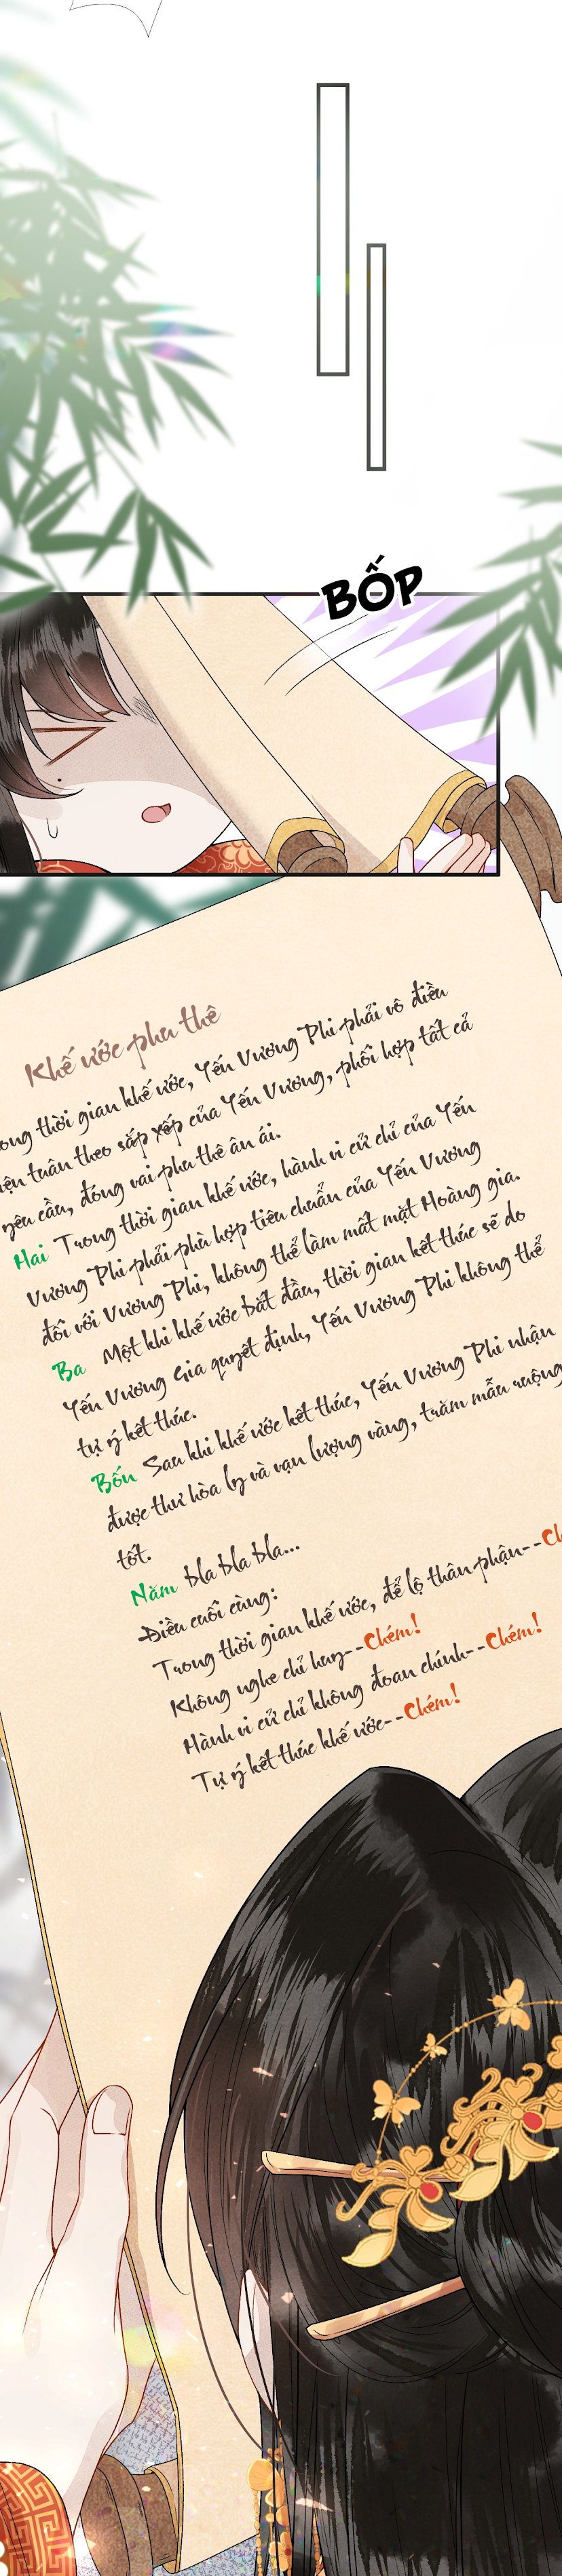 BỐP
Khế ước phu thê
ong thời gian khế ước, Yến Vương Phi phải vô điều
iện tuân theo sắp xếp của Yến Vương, phối hợp tất cả
yêu cầu, đóng vai phu thê ân ái.
Hai Trong thời gian khế ước, hành vi cử chỉ của Yến
Vương Phi phải phù hợp tiêu chuẩn của Yến Vương
đối với Vương Phi, không thể làm mất mặt Hoàng gia.
Ba Một khi khế ước bắt đầu, thời gian kết thúc sẽ do
Yến Vương Gia quyết định, Yến Vương Phi không thể
tự ý kết thúc.
Bốn Sau khi khế ước kết thúc, Yến Vương Phi nhận
được thư hòa ly và vạn lượng vàng, trăm mẫu ruộng
tốt.
Năm bla bla bla...
Điều cuối cùng:
Trong thời gian khế ước, để lộ thân phận--Ch
Không nghe chỉ huy--Chém!
Hành vi cử chỉ không đoan chính--Chém!
Tự ý kết thúc khế ước--Chém!